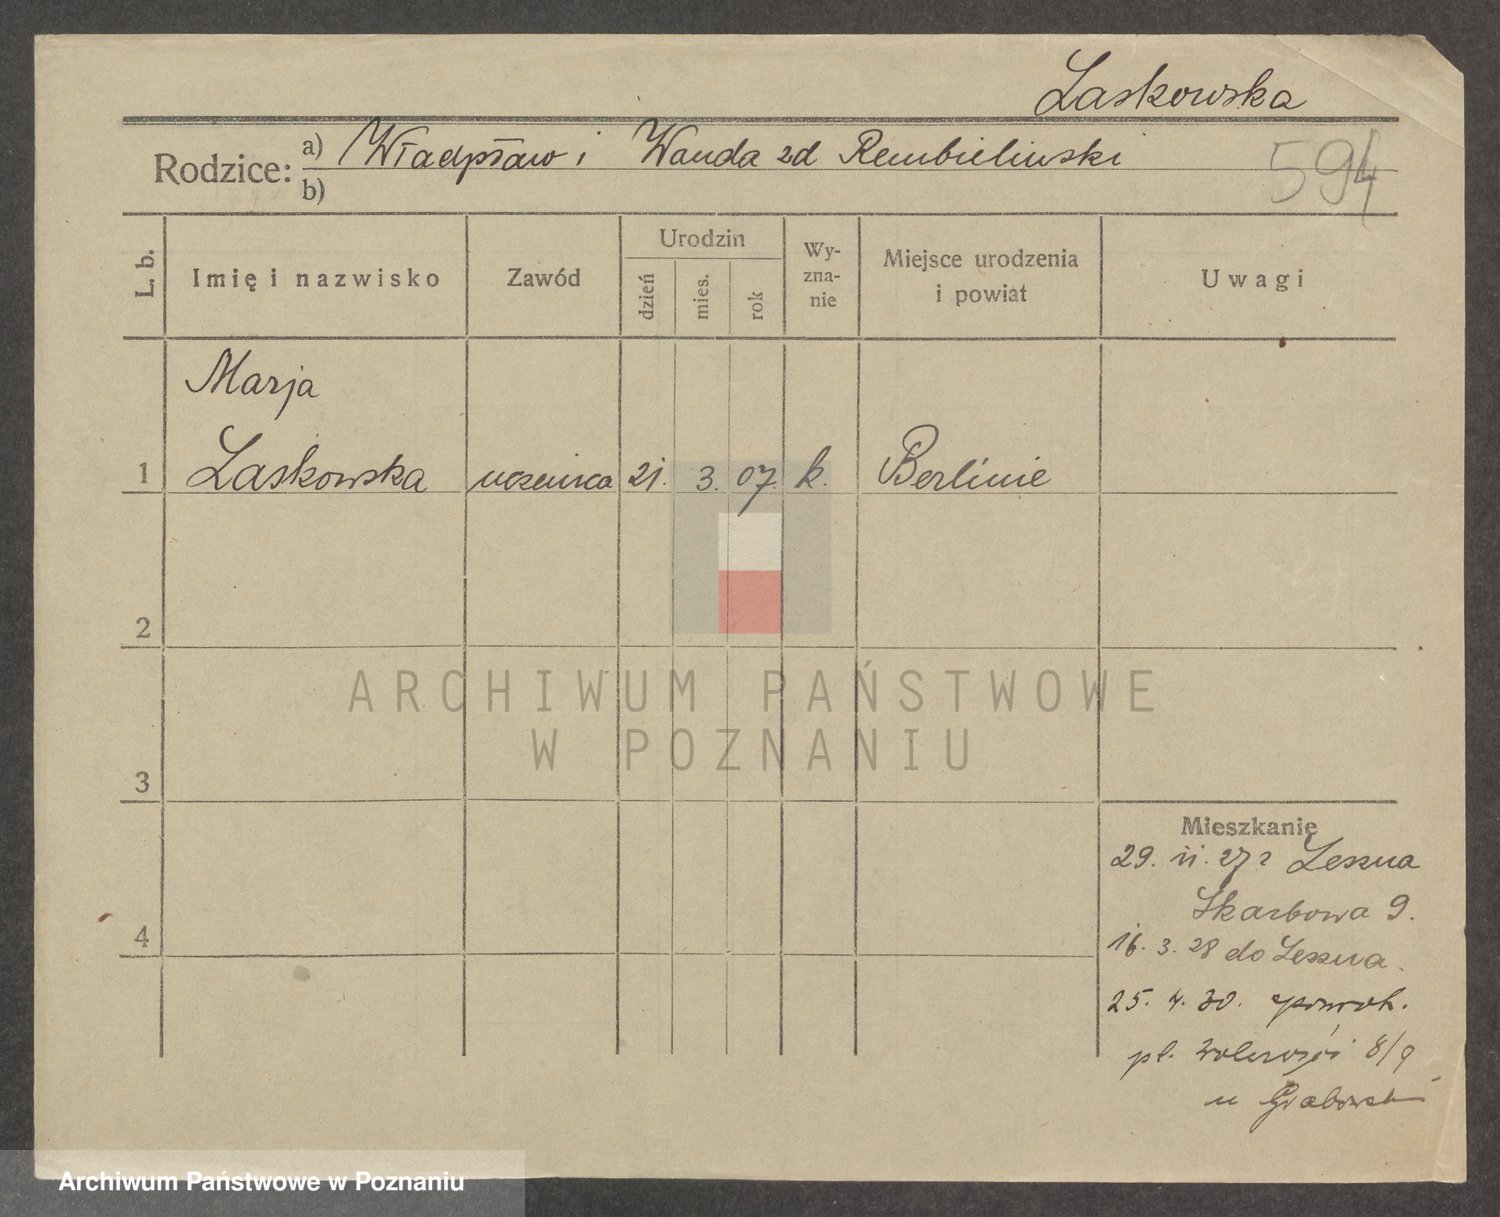 Laskowska
Rodzice: a) Władysław i Wanda zd Rembielinski
b)
594
L. b.
Imię i nazwisko
Zawód
Urodzin
dzień
mies.
rok
Wy-
zna-
nie
Miejsce urodzenia
i powiat
Uwagi
Marja
1 Laskowska uczenica 21. 3. 07. k. Berlinie
2
3
4
Mieszkanie
29. 11. 27 z Leszna
Skarbowa 9.
16. 3. 28 do Leszna.
25. 4. 30.
pl. 8/9
u Grabowski
ARCHIWUM PAŃSTWOWE
W POZNANIU
Archiwum Państwowe w Poznaniu